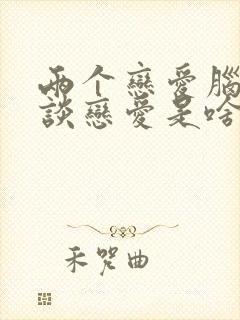 兩个戀愛腦
談戀愛是啥
禾咒曲